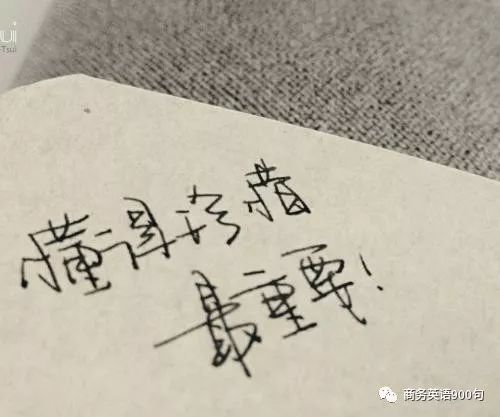 ui
-Tsui
懂得珍惜
最重要!
商务英语900句